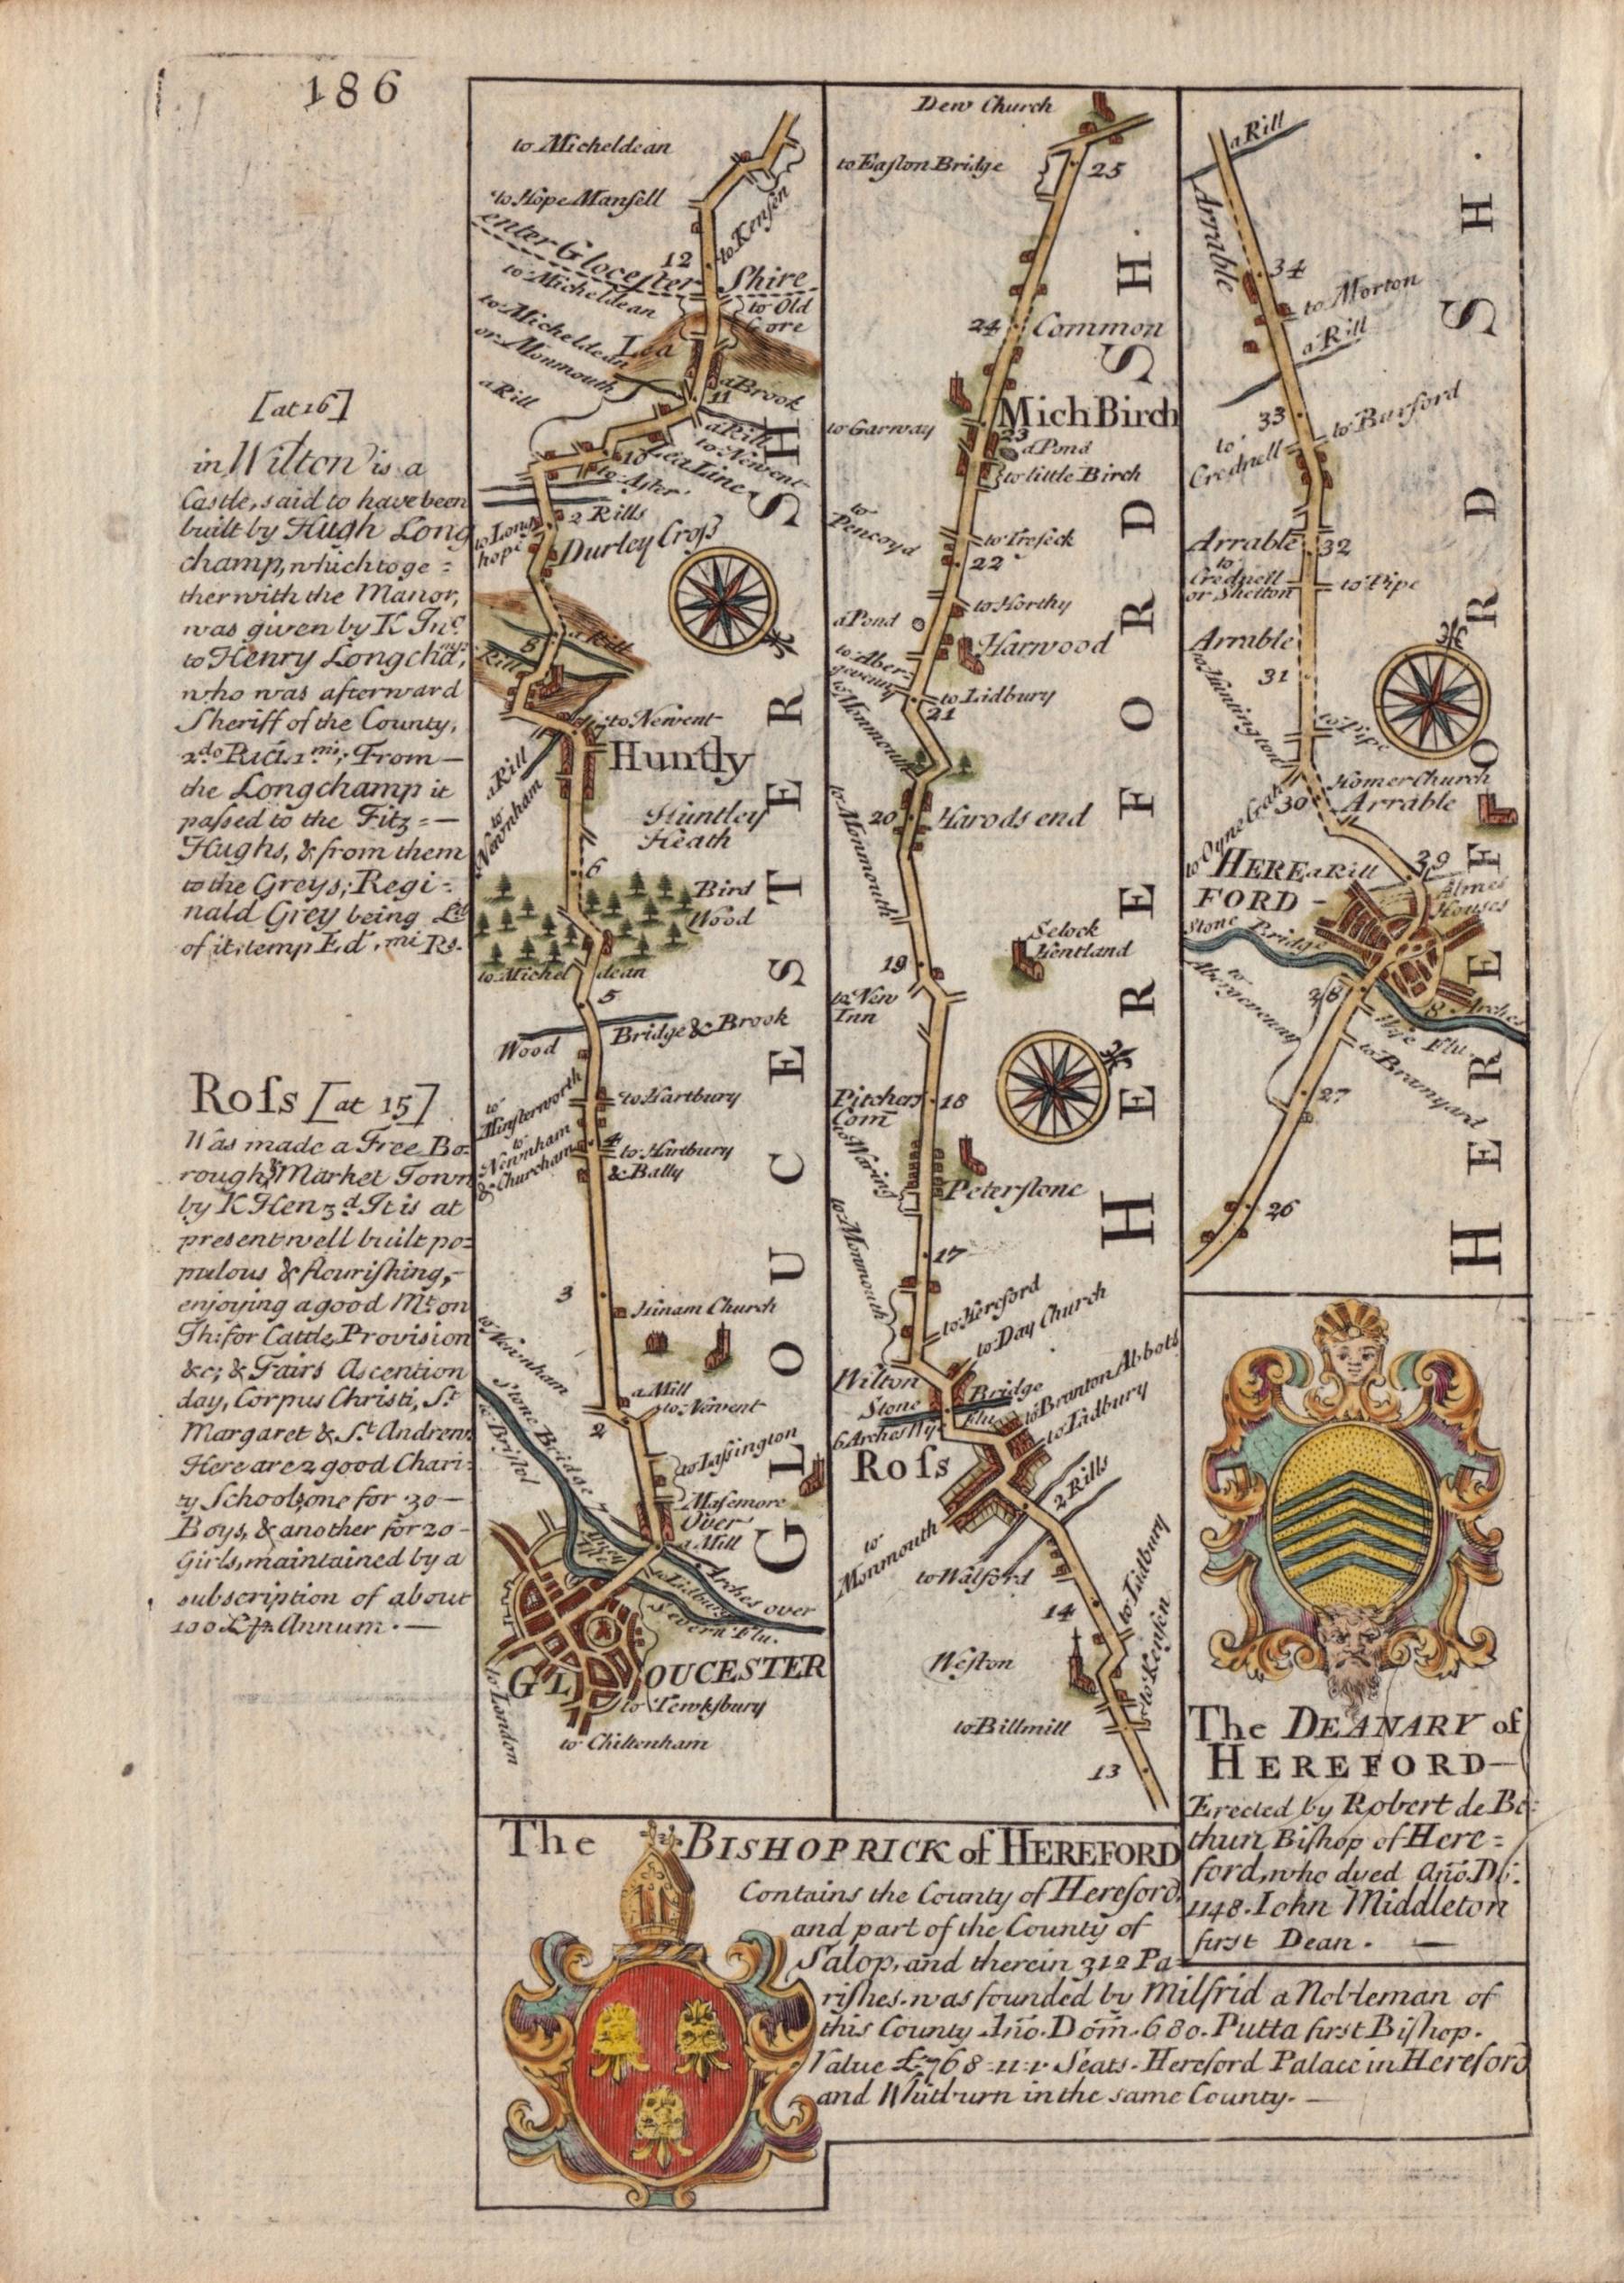 186
[at 16]
in Wilton is a
Castle, said to have been
built by Hugh Long
champ, which toge=
ther with the Manor,
was given by K Jnọ.
to Henry Longchāp,
who was afterward
Sheriff of the County,
From—
the Longchamp it
paſsed to the Fitz=—
Hughs, & from them
to the Greys; Regi=
nald Grey being Ld
of it, temp Ed. 1mi Rs.
Roſs [at 15]
Was made a Free Bo=
rough & Market Town
by K Hen 3d. It is at
present well built po=
pulous & flouriſhing,—
enjoying a good Mt. on
Th: for Cattle, Provision
&c; & Fairs Ascention
day, Corpus Christi, St.
Margaret & St. Andrew
Here are 2 good Chari=
ty Schools, one for 30—
Boys, & another for 20—
Girls, maintained by a
subscription of about
100 £ p Annum.—
to Micheldean
to Hope Manſell
enter Glocester Shire
12
to Kenſen
to Micheldean
to Old
Gore
to Micheldean
or Monmouth
Lea
a Brook
a Rill
11
a Rill
to Newent
Lea Line
10
to Aſter
2 Rills
to Long
hope
Durley Croſs
8
a Rill
Rill
to Newent
Huntly
a Rill
to
Newnham
Huntley
Heath
6
Bird
Wood
to Micheldean
5
Bridge & Brook
Wood
to
Minsterworth
to Hartbury
to
Newnham
& Churcham
4
to Hartbury
& Bally
3
Hinam Church
to Newnham
a Mill
to Newent
2
Stone Bridge 7
to Bristol
to Laſsington
Maſemore
Over
a Mill
to Lidbury
Arches over
Severn Flu.
GLOUCESTER
to Tewkſbury
to London
to Chiltenham
GLOUCESTER SH
Dew Church
to Eaſton Bridge
25
24
Common
Mich Birch
to Garway
23
a Pond
to little Birch
to
Pencoyd
to Treſeck
22
to Horthy
a Pond
Harwood
to Aber-
gevenny
to Lidbury
to Monmouth
21
20
Harods end
to Monmouth
Selock
Hentland
19
to New
Inn
Pitchers
Com̄
18
to Waring
Peterſtone
to Monmouth
17
to Hereford
to Day Church
Wilton
Bridge
Stone
6 Arches Wye Flu.
to Branton Abbots
to Lidbury
Roſs
2 Rills
to
Monmouth
to Walford
to Lidbury
14
Weſton
to Kenſen
to Billmill
13
HEREFORD SH.
a Rill
Arrable
34
to Morton
a Rill
33
to Burford
to
Crednell
Arrable
32
to
Crednell
or Shelton
to Pipe
Arrable
31
to Huntington
to Pipe
Homer Church
30
Arrable
to Oyne Gate
39
HERE
FORD
a Rill
Almes
Houses
Stone Bridge
8 Arches
to
Abergevenny
28
Wye Flu.
to Bramyard
27
26
HEREFORD SH.
The DEANARY of
HEREFORD—
Erected by Robert de Be=
thun Biſhop of Here=
ford, who dyed Año. Dō.
1148. John Middleton
first Dean.—
The BISHOPRICK of HEREFORD
Contains the County of Hereford,
and part of the County of
Salop, and therein 312 Pa=
riſhes. was founded by Milfrid a Nobleman of
this County Año. Dom̄. 680. Putta first Biſhop.
Value £768=11=1. Seats. Hereford Palace in Hereford
and Whitburn in the same County.—